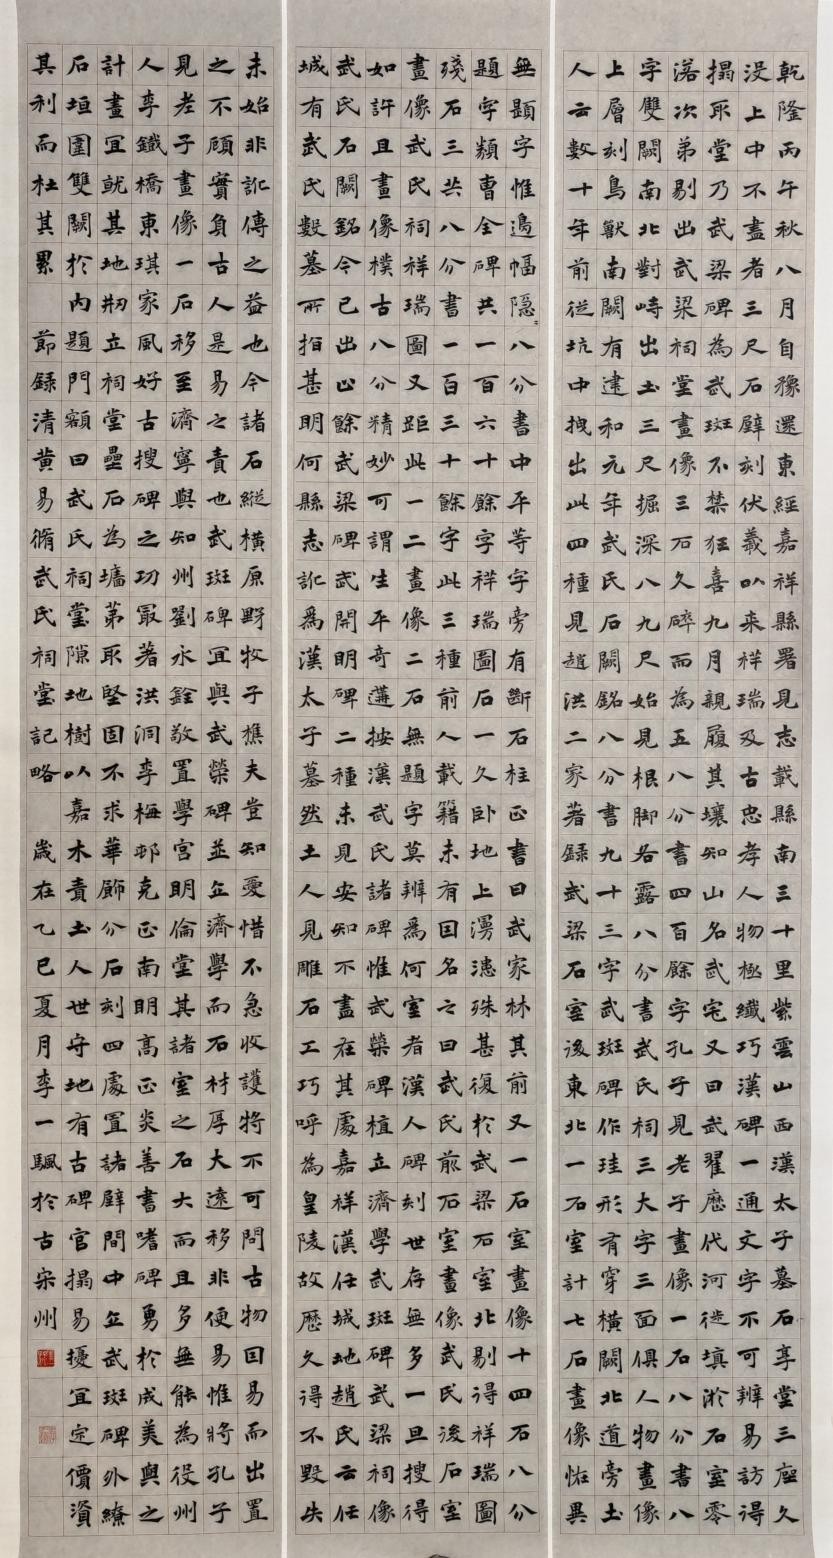 乾隆丙午秋八月自豫還東經嘉祥縣署見志載縣南三十里紫雲山西漢太子墓石享堂三座久
没上中不盡者三尺石壁刻伏羲以来祥瑞及古忠孝人物極纖巧漢碑一通文字不可辨易訪得
搨取堂乃武梁碑為武斑不禁狂喜九月親履其壤知山名武宅又曰武翟歷代河徙填淤石室零
落次弟剔出武梁祠堂畫像三石久碎而為五八分書四百餘字孔子見老子畫像一石八分書八
字雙闕南北對峙出土三尺掘深八九尺始見根脚各露八分書武氏祠三大字三面俱人物畫像
上層刻鳥獸南闕有建和元年武氏石闕銘八分書九十三字武斑碑作珪形有穿橫闕北道旁土
人云數十年前從坑中拽出此四種見趙洪二家著錄武梁石室後東北一石室計七石畫像恠異
無題字惟邊幅隱〻八分書中平等字旁有斷石柱正書曰武家林其前又一石室畫像十四石八分
題字類曹全碑共一百六十餘字祥瑞圖石一久卧地上漫漶殊甚復於武梁石室北剔得祥瑞圖
殘石三共八分書一百三十餘字此三種前人載籍未有因名之曰武氏前石室畫像武氏後石室
畫像武氏祠祥瑞圖又距此一二畫像二石無題字莫辨爲何室者漢人碑刻世存無多一旦搜得
如許且畫像樸古八分精妙可謂生平奇遘按漢武氏諸碑惟武榮碑植立濟學武斑碑武梁祠像
武氏石闕銘今已出正餘武梁碑武開明碑二種未見安知不盡在其處嘉祥漢任城地趙氏云任
城有武氏數墓所指甚明何縣志訛爲漢太子墓然土人見雕石工巧呼為皇陵故歷久得不毀失
未始非訛傳之益也今諸石縱橫原野牧子樵夫豈知愛惜不急收護將不可問古物因易而出置
之不顧實負古人是易之責也武斑碑宜與武榮碑並立濟學而石材厚大遠移非便易惟將孔子
見老子畫像一石移至濟寧與知州劉永銓敬置學宮明倫堂其諸室之石大而且多無能為役州
人李鐵橋東琪家風好古搜碑之功最著洪洞李梅邨克正南明高正炎善書嗜碑勇於成美與之
計畫宜就其地刱立祠堂壘石為墻第取堅固不求華飾分石刻四處置諸壁間中立武斑碑外繚
石垣圍雙闕於內題門額曰武氏祠堂隙地樹以嘉木責土人世守地有古碑官搨易擾宜定價資
其利而杜其累 節錄清黄易脩武氏祠堂記略 歲在乙巳夏月李一颿於古宋州